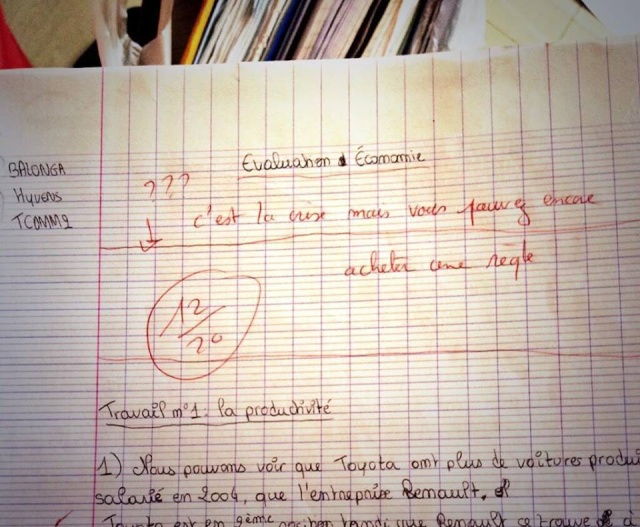 BALONGA
Hyvens
TCOMM2
Evaluation Économie
???
c'est la crise mais vous pouvez encore
acheter une regle
12/20
Travail n°1: la productivité
1) Nous pouvons voir que Toyota ont plus de voitures produi
salarié en 2004, que l'entreprise Renault.
Toyota est en 2ème tandi que Renault ce trouve